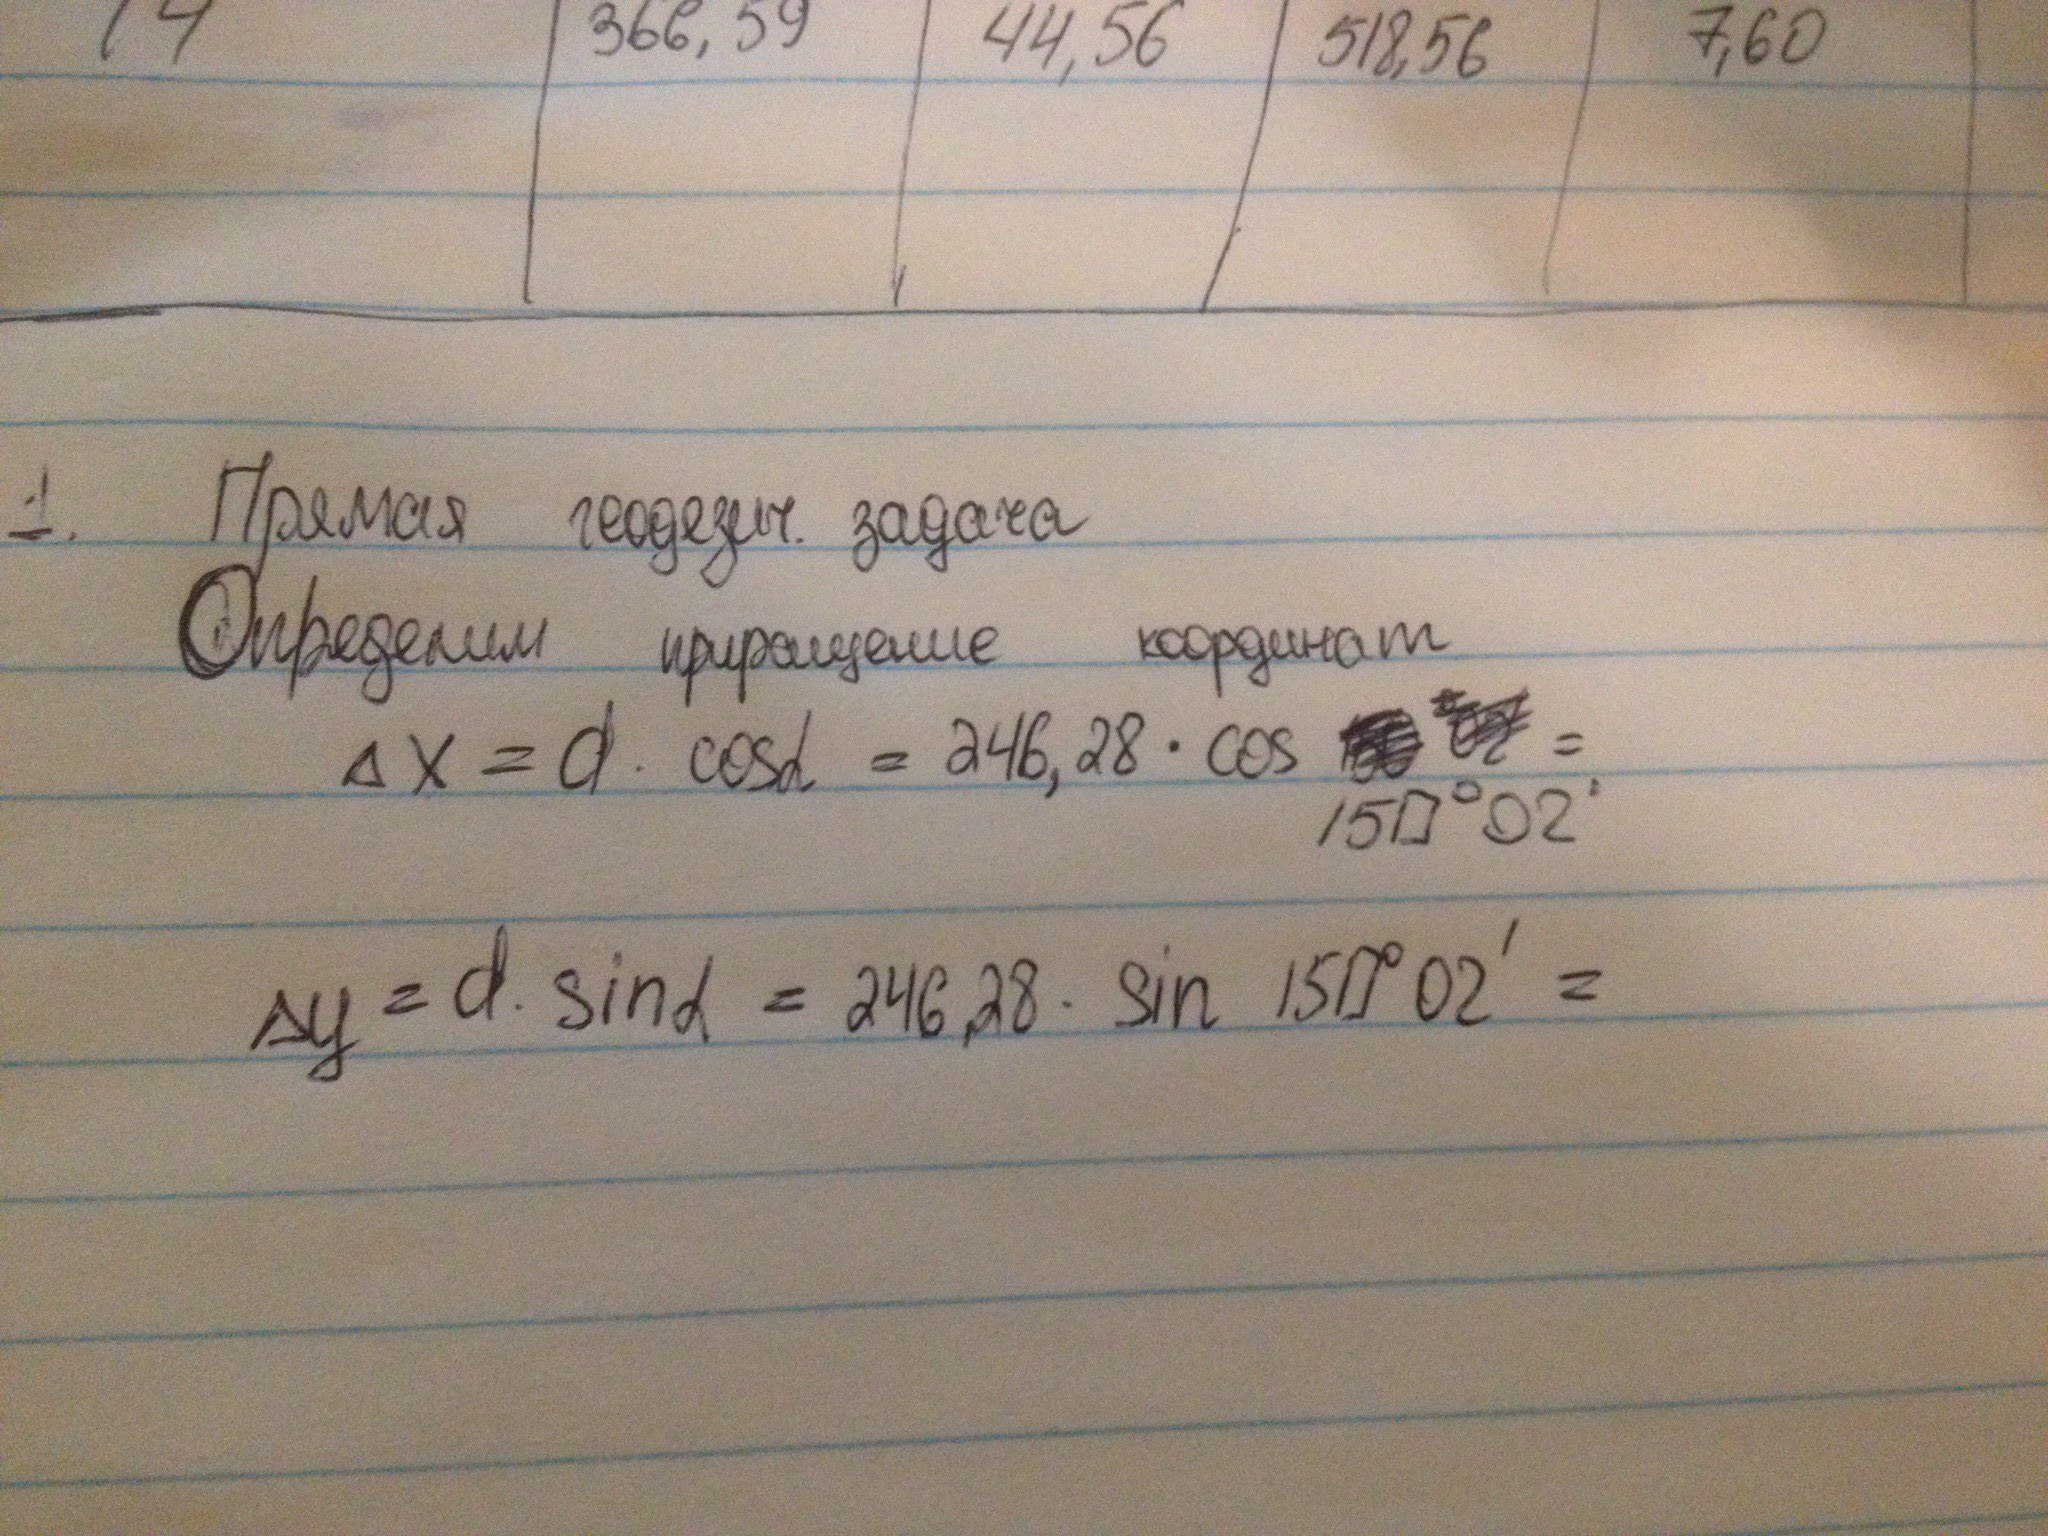 14 366,59 44,56 518,56 7,60
1. Прямая геодезич. задача
Определим приращение координат
Δx = d · cosα = 246,28 · cos =
150° 02'
Δy = d · sinα = 246,28 · sin 150° 02' =